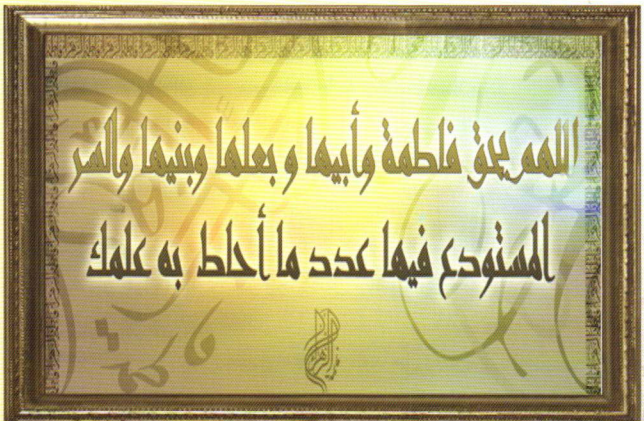 اللهم بحق فاطمة وأبيها و بعلها وبنيها والسر
المستودع فيها عدد ما أحاط به علمك